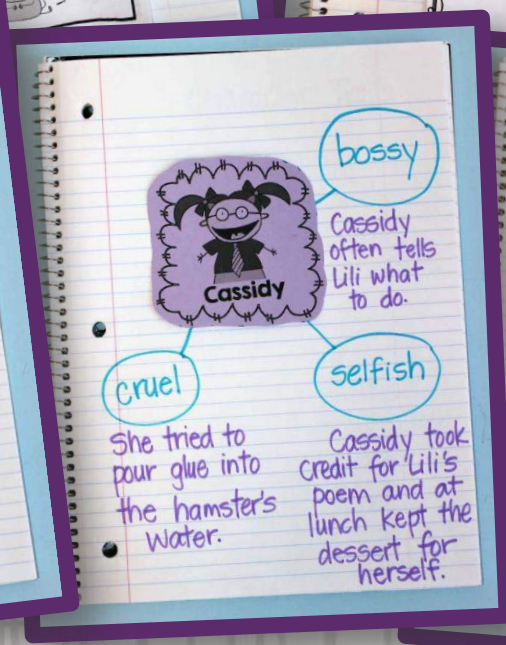 bossy
Cassidy
often tells
Lili what
to do.
Cassidy
cruel
She tried to
pour glue into
the hamster's
water.
selfish
Cassidy took
credit for Lili's
poem and at
lunch kept the
dessert for
herself.